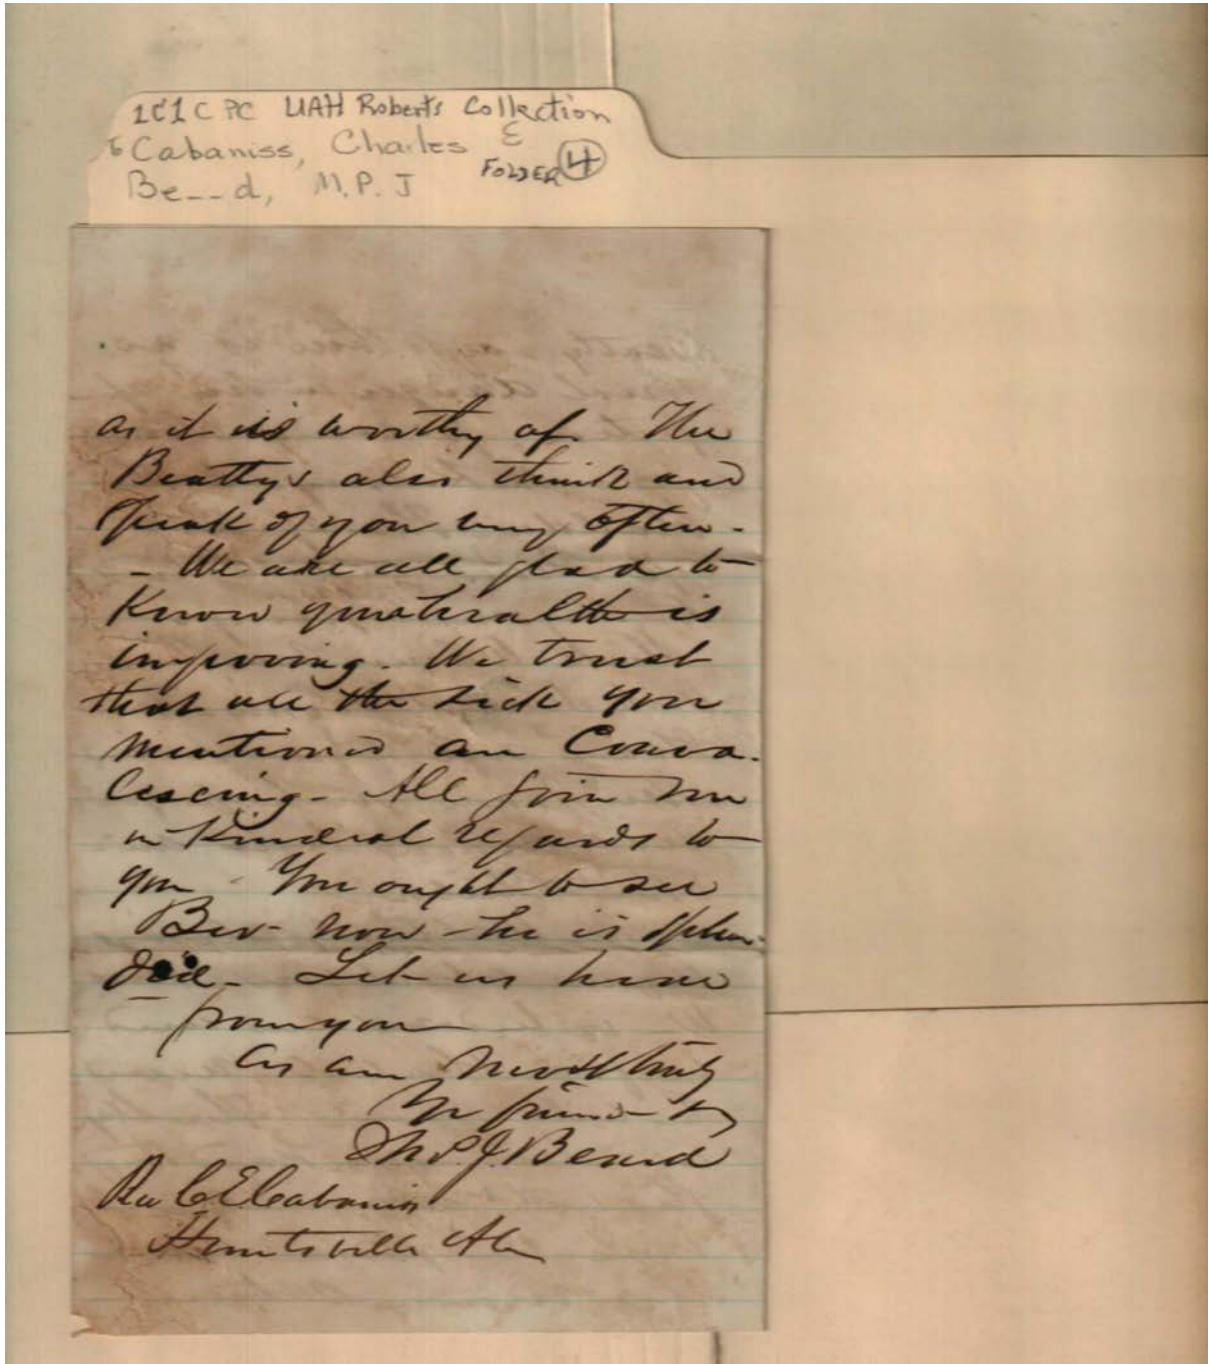 101 C PC UAH Roberts Collection
to Cabaniss, Charles E
Be--d, M.P.J FOLDER 4
as it is worthy of. The
Beattys also think and
speak of you very often-
- We are all glad to
know your health is
improving. We trust
that all the sick you
mentioned are Conva-
lescing- All join me
in kindest regards to
you - You ought to see
Bev- now - he is splen-
did- Let us hear
from you
As am truly
Yr friend
Thos. J. Beard
Rev C E Cabaniss
Huntsville Ala